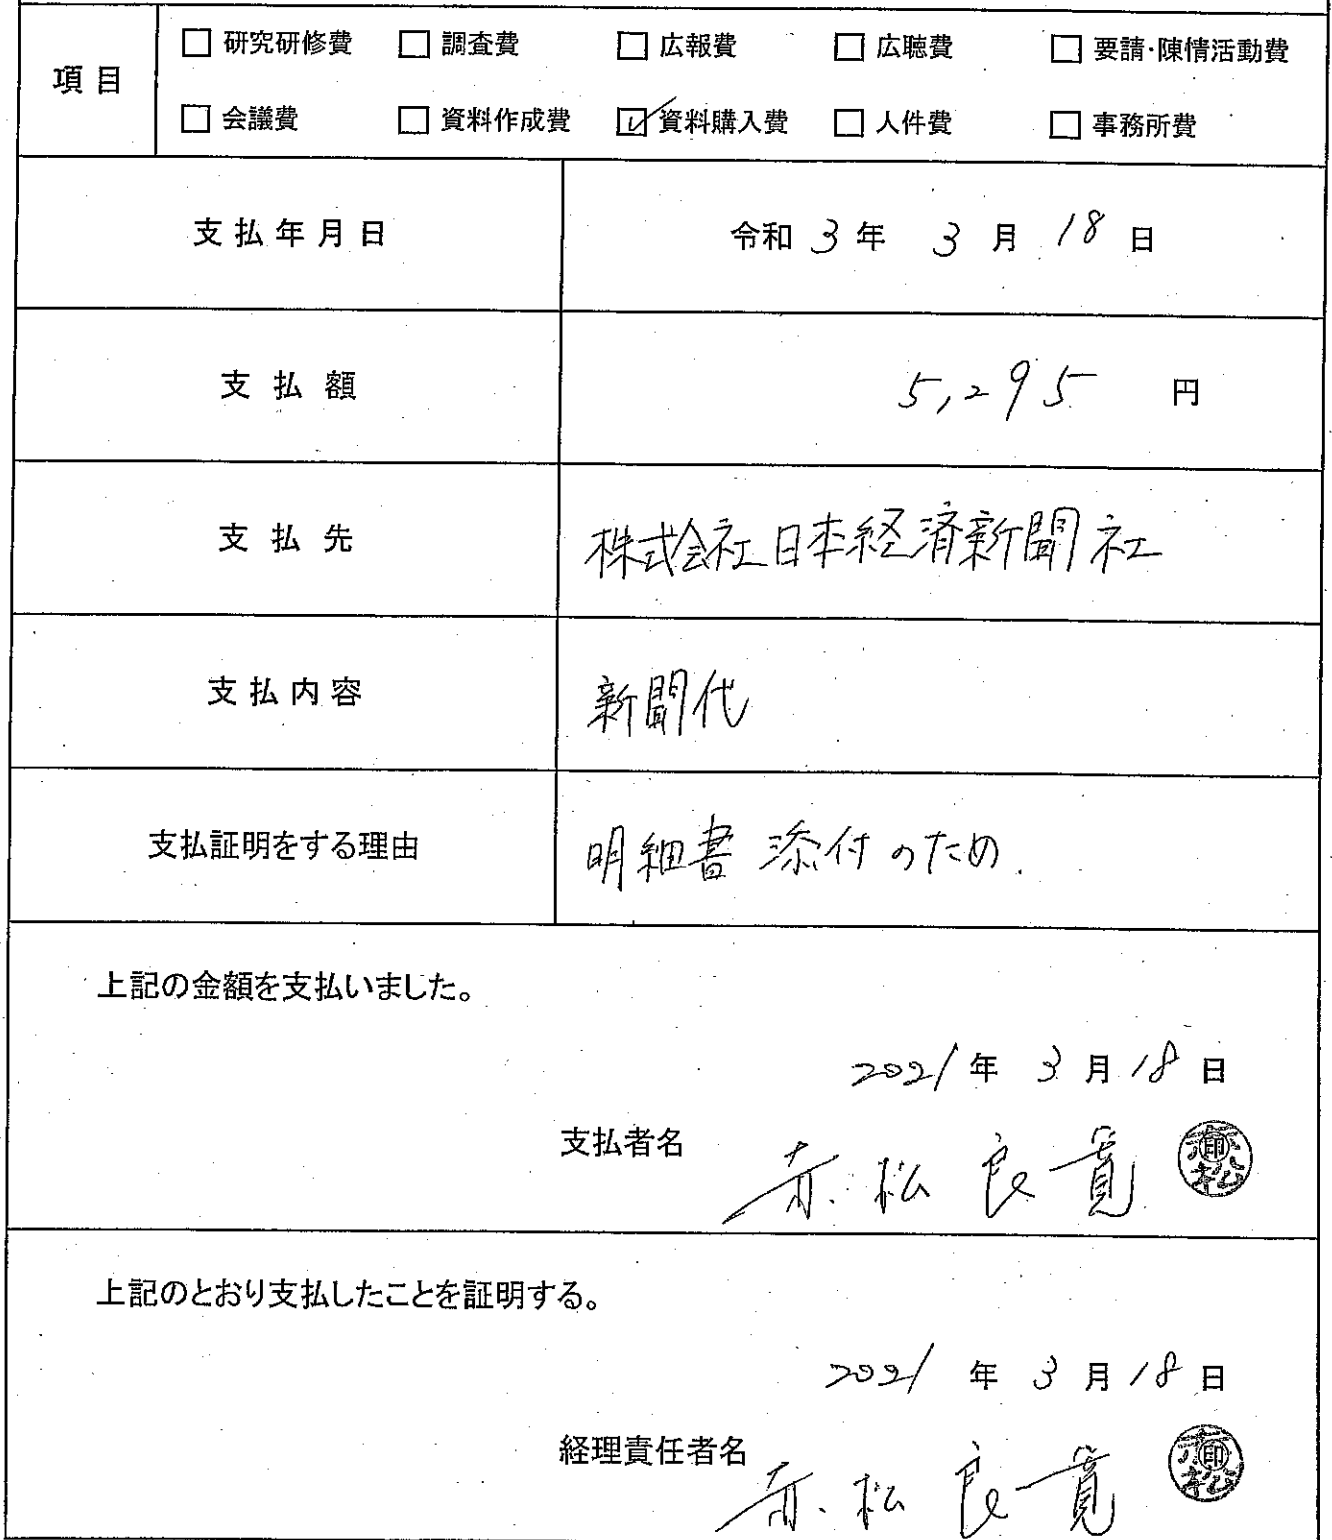 □ 研究研修費 □ 調査費 □ 広報費 □ 広聴費 □ 要請・陳情活動費
項目
□ 会議費 □ 資料作成費 ☑ 資料購入費 □ 人件費 □ 事務所費
支払年月日 令和 3 年 3 月 18 日
支払額 5,295 円
支払先 株式会社日本経済新聞社
支払内容 新聞代
支払証明をする理由 明細書添付のため.
上記の金額を支払いました。
2021年 3月18日
支払者名 赤松良寛 印 赤松
上記のとおり支払したことを証明する。
2021年 3月18日
経理責任者名 赤松良寛 印 赤松